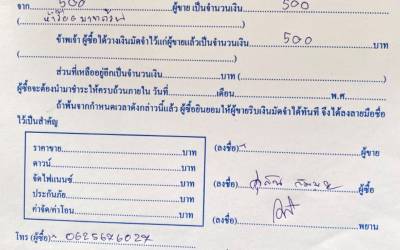 จาก 500 ผู้ขาย เป็นจำนวนเงิน 500
(ห้าร้อยบาทถ้วน)
ข้าพเจ้า ผู้ซื้อได้วางเงินมัดจำไว้แก่ผู้ขายแล้วเป็นจำนวนเงิน 500 บาท
( )
ส่วนที่เหลืออยู่อีกเป็นจำนวนเงิน บาท ( )
ผู้ซื้อจะต้องนำมาชำระให้ครบถ้วนภายใน วันที่ เดือน พ.ศ.
ถ้าพ้นจากกำหนดเวลาดังกล่าวนี้แล้ว ผู้ซื้อยินยอมให้ผู้ขายริบเงินมัดจำได้ทันที จึงได้ลงลายมือชื่อ
ไว้เป็นสำคัญ
ราคาขาย บาท
ดาวน์ บาท
จัดไฟแนนซ์ บาท
ประกันภัย บาท
ค่าจัด/ค่าโอน บาท
(ลงชื่อ) ผู้ขาย
(ลงชื่อ) ผู้ซื้อ
(ลงชื่อ) พยาน
โทร (ผู้ซื้อ) 0625676027